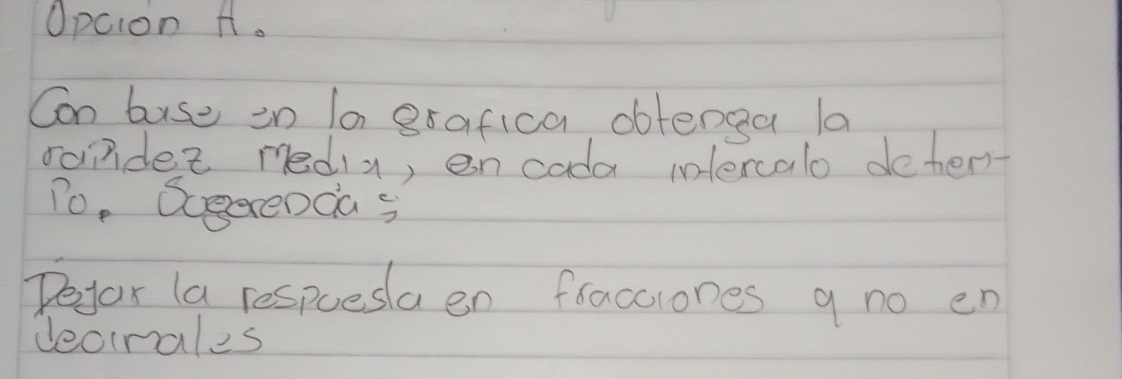 Opcion A.
Con base en la grafica obtenga la
rapidez media, en cada intercalo de tiem-
Po. Sugerencia:
Dejar la respuesta en fracciones y no en
decimales